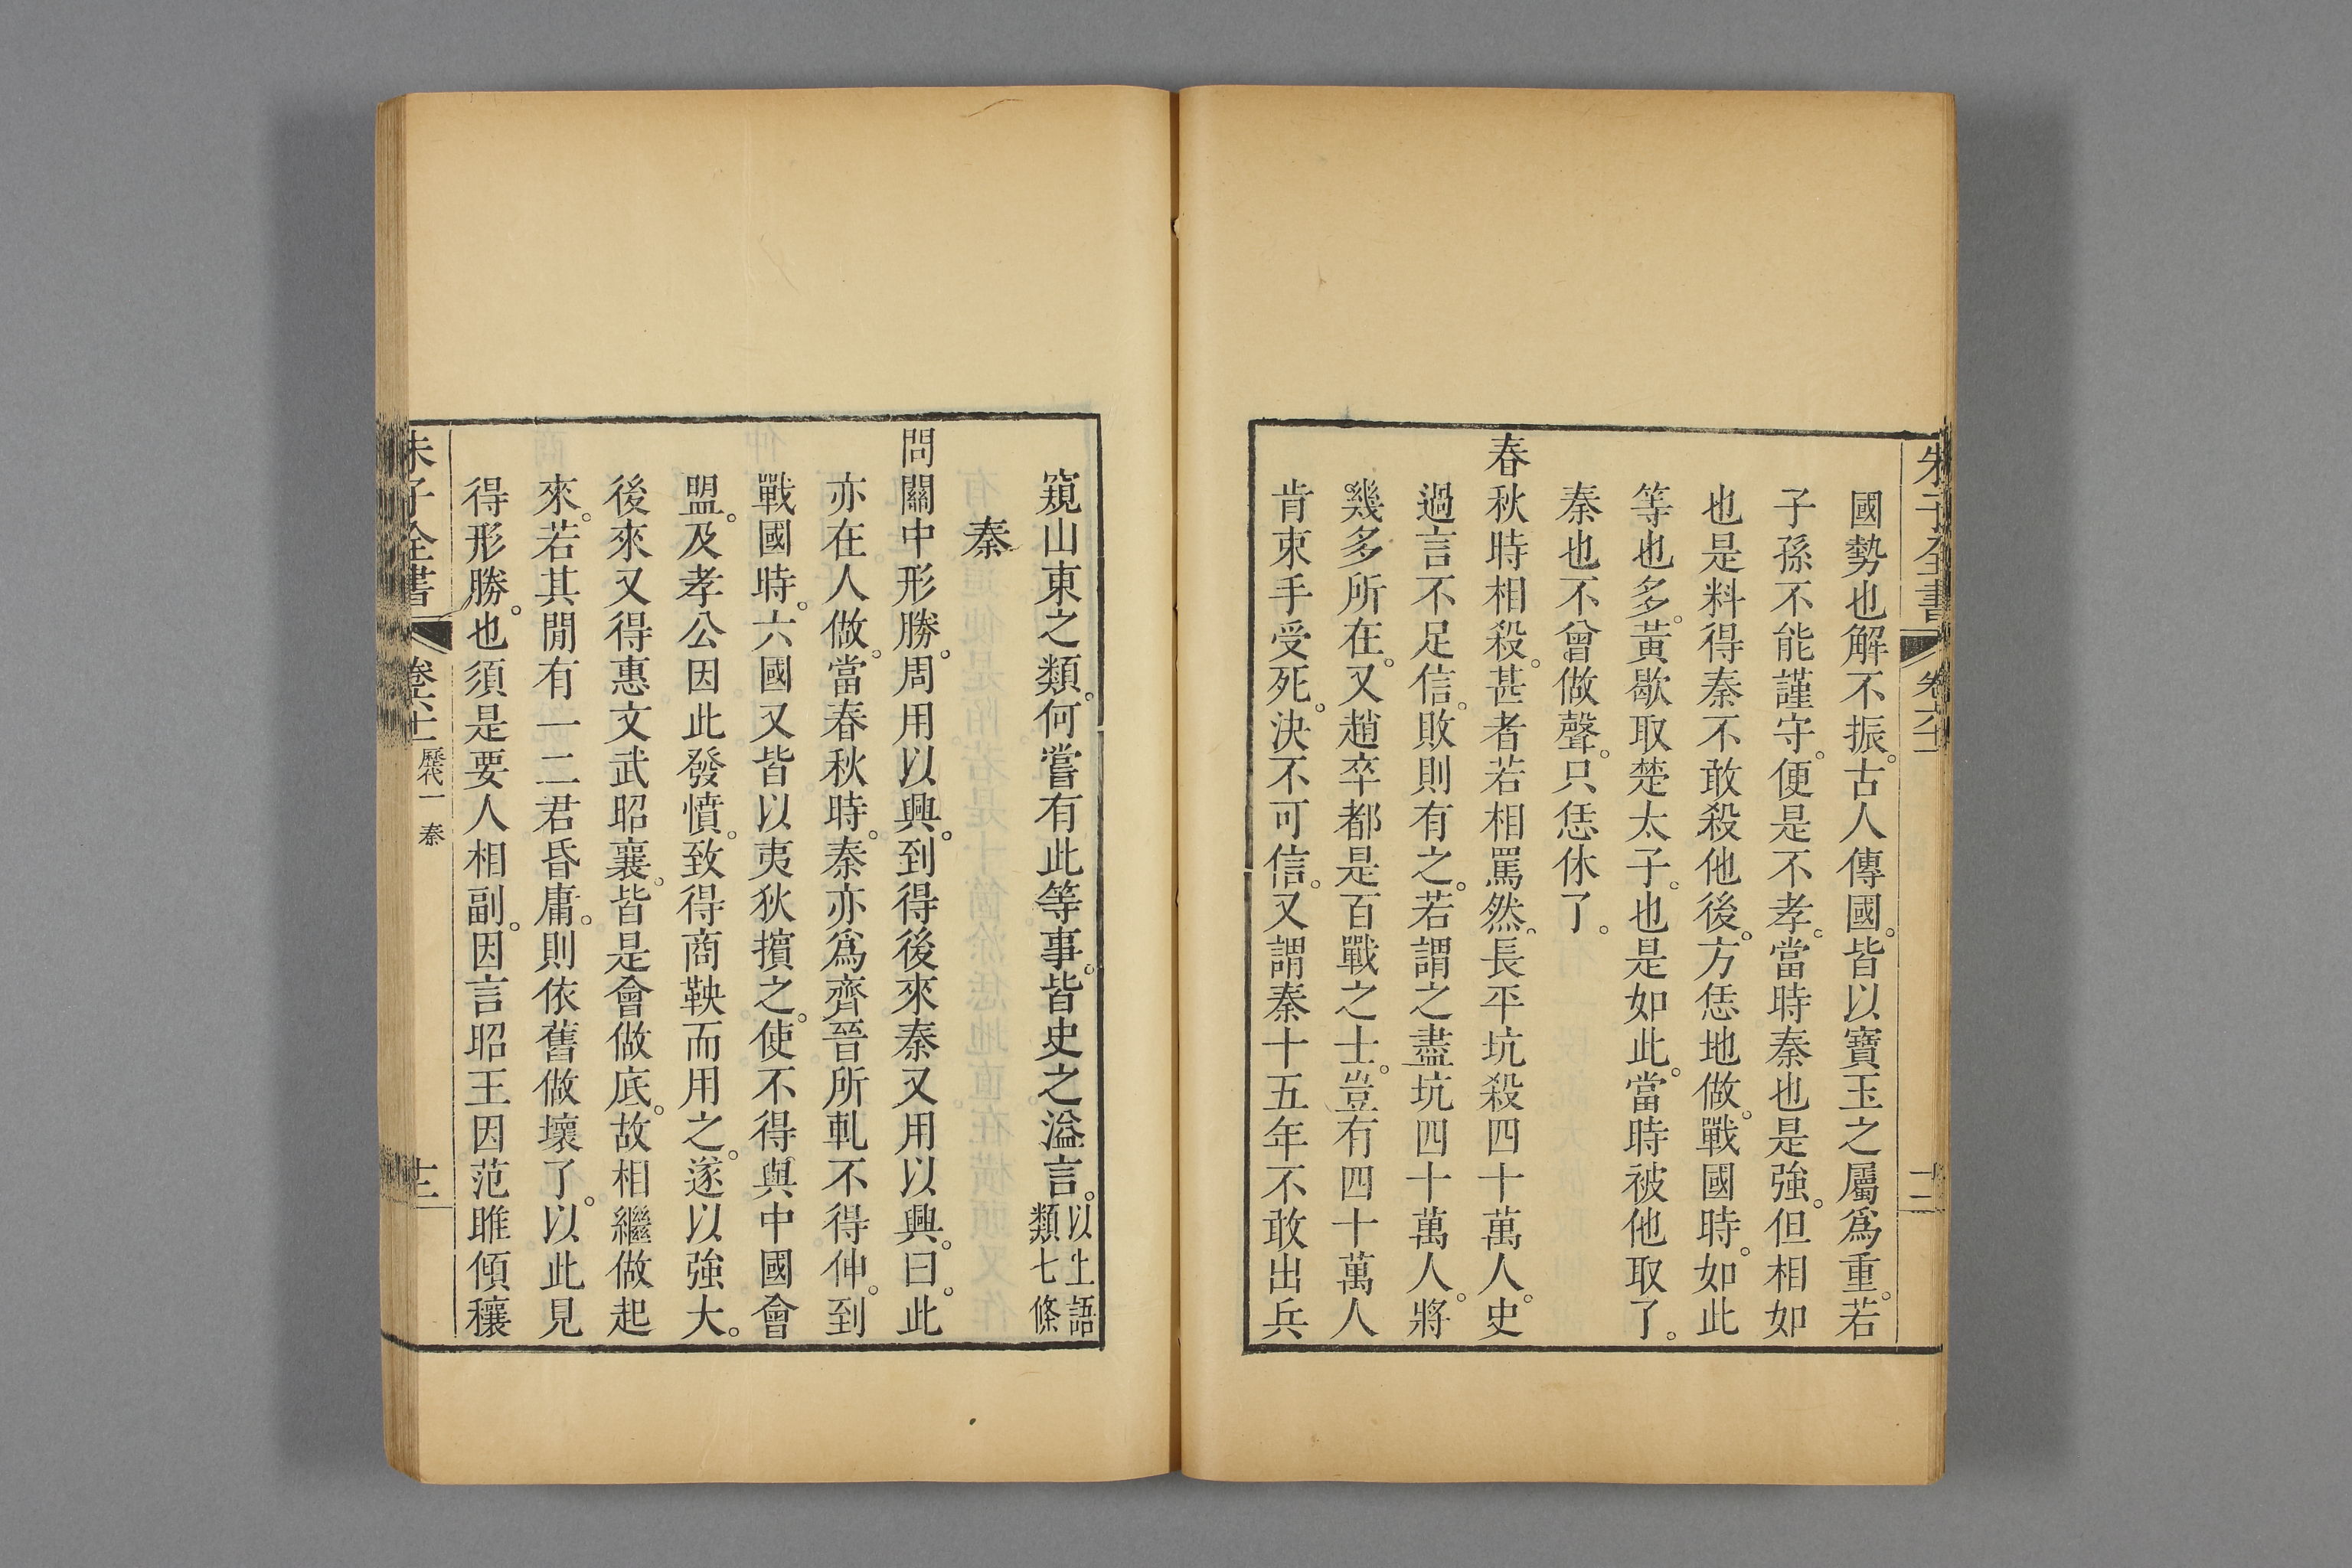 朱子全書 卷六十一 十二
國勢也解不振。古人傳國。皆以寶玉之屬爲重。若
子孫不能謹守。便是不孝。當時秦也是強。但相如
也是料得秦不敢殺他後。方恁地做。戰國時。如此
等也多。黃歇取楚太子。也是如此。當時被他取了。
秦也不曾做聲。只恁休了。
春秋時相殺。甚者若相罵然。長平坑殺四十萬人。史
過言不足信。敗則有之。若謂之盡坑四十萬人。將
幾多所在。又趙卒都是百戰之士。豈有四十萬人
肯束手受死。決不可信。又謂秦十五年不敢出兵
窺山東之類。何嘗有此等事。皆史之溢言。以上語類七條
秦
問關中形勝。周用以興。到得後來秦又用以興。曰。此
亦在人做。當春秋時。秦亦爲齊晉所軋不得伸。到
戰國時。六國又皆以夷狄擯之。使不得與中國會
盟。及孝公因此發憤。致得商鞅而用之。遂以強大。
後來又得惠文武昭襄。皆是會做底。故相繼做起
來。若其閒有一二君昏庸。則依舊做壞了。以此見
得形勝。也須是要人相副。因言昭王因范雎傾穰
朱子全書 卷六十一 歷代一 秦 十三